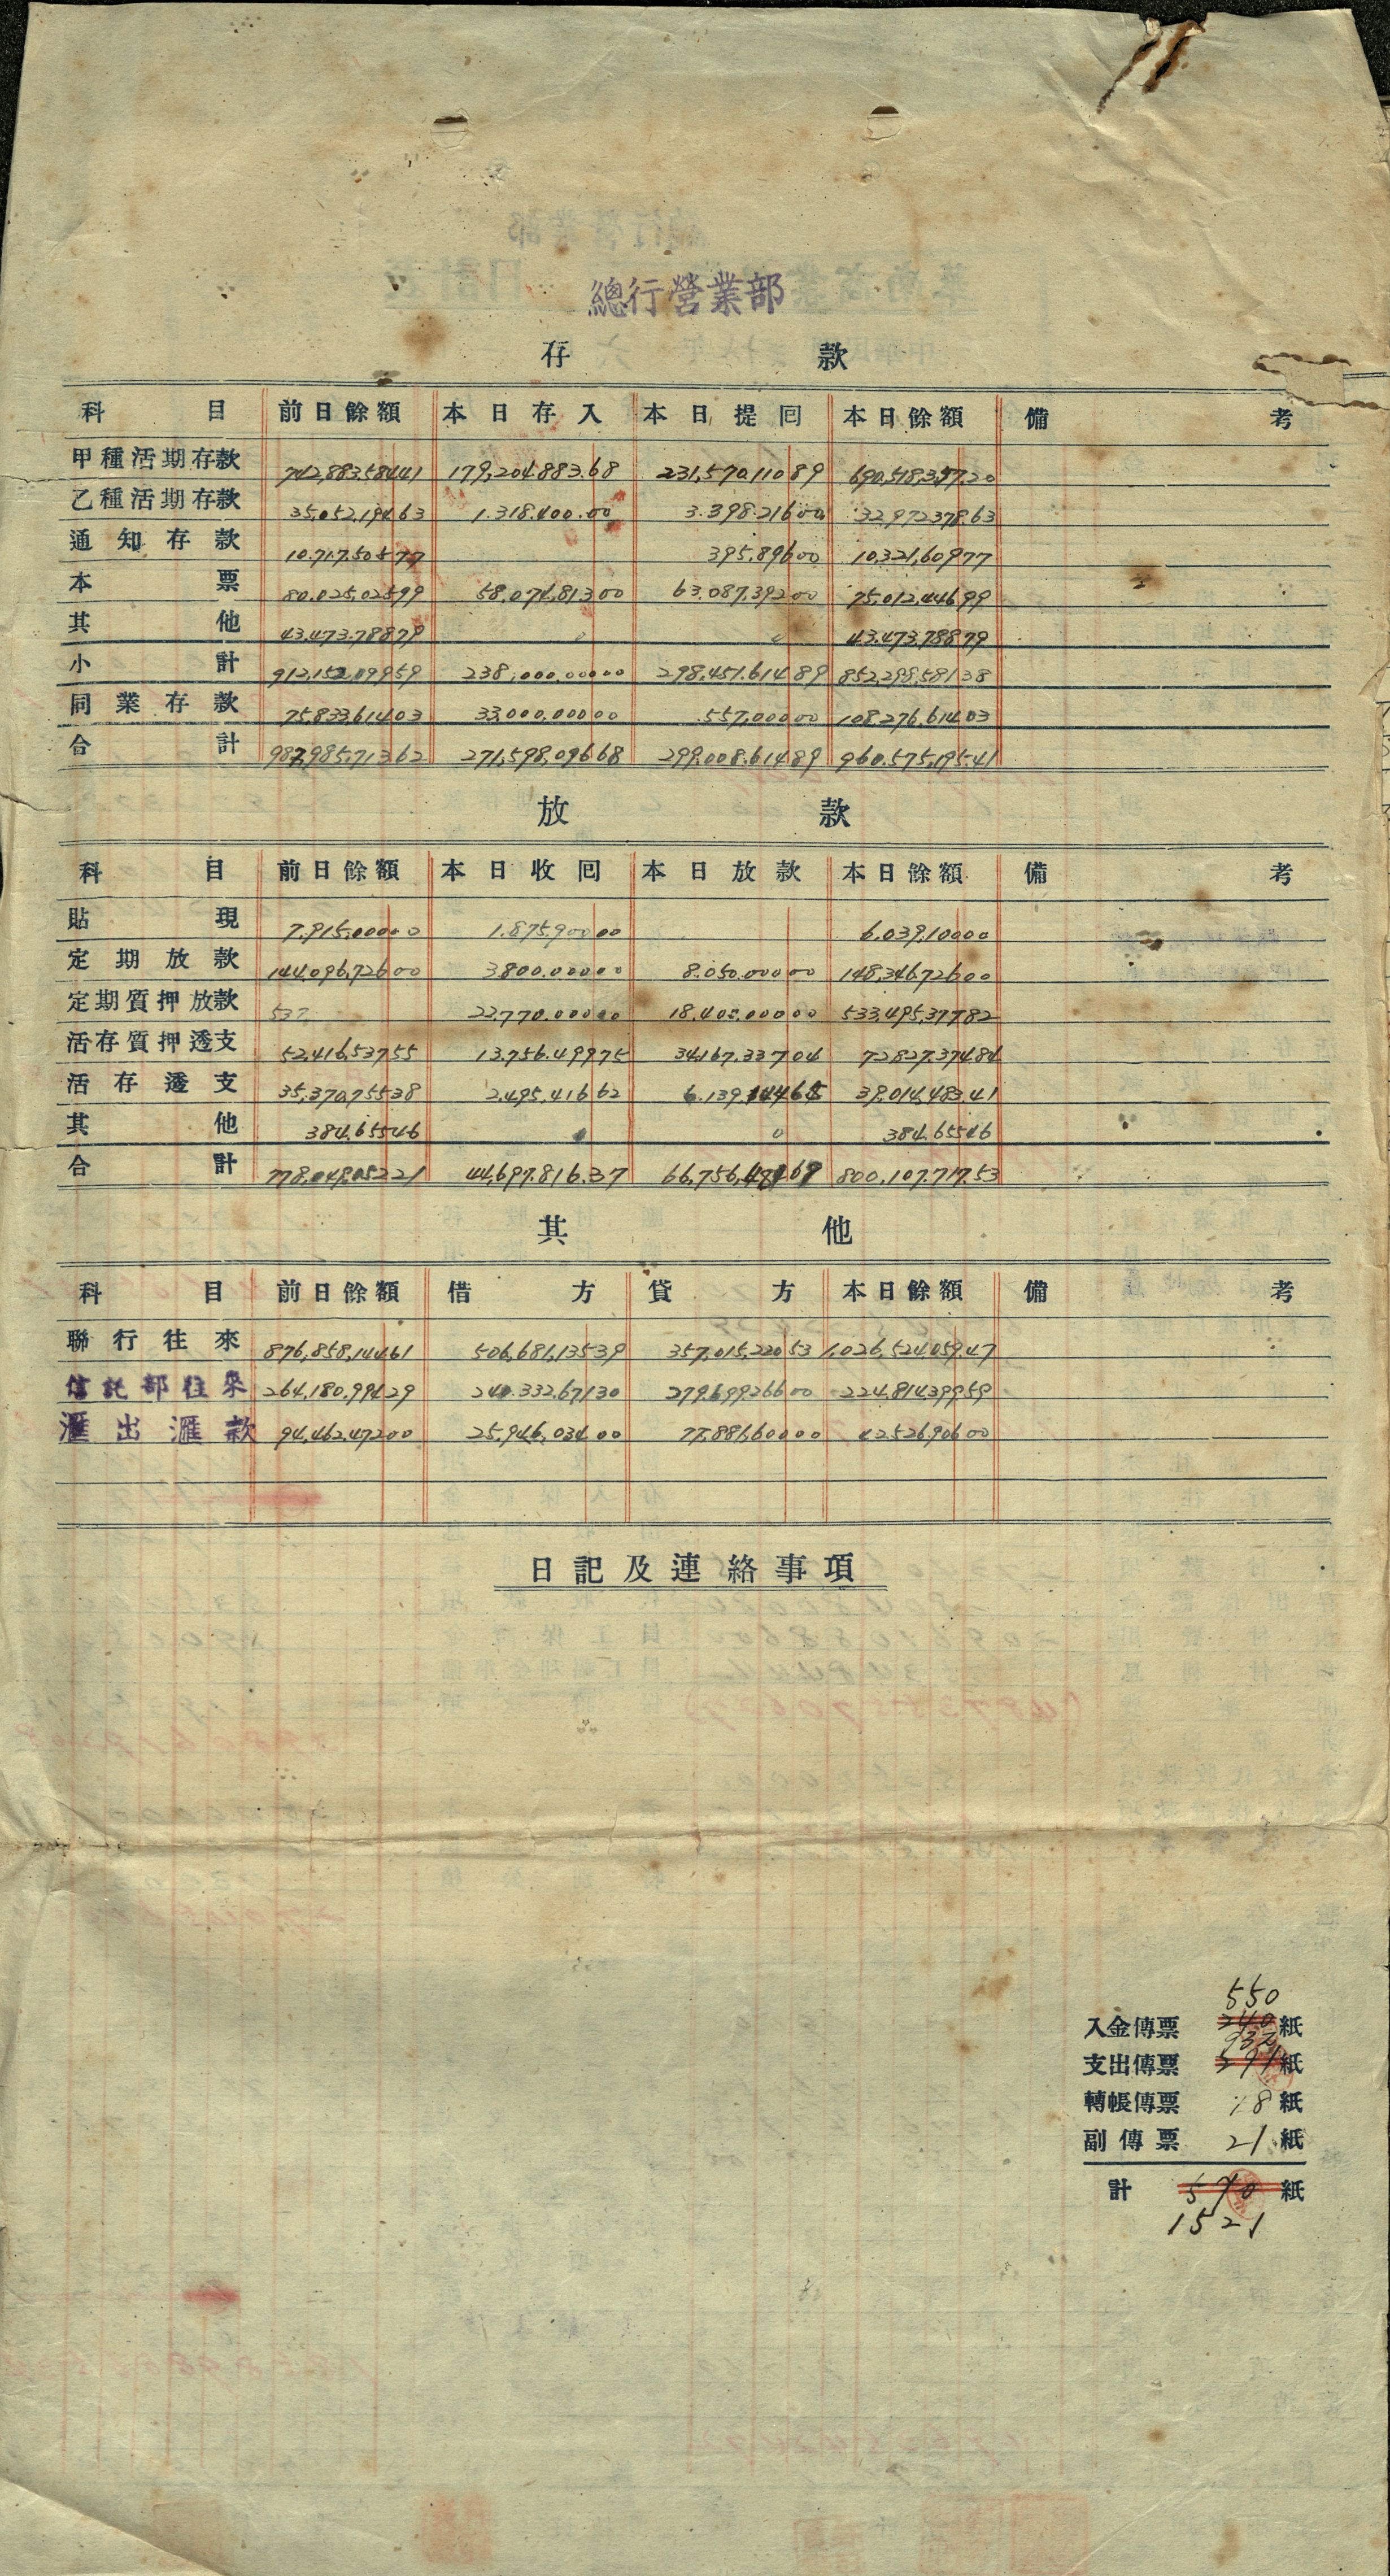 總行營業部
存 款
科目 前日餘額 本日存入 本日提囘 本日餘額 備考
甲種活期存款 742,883,584.41 179,204,883.68 231,570,110.89 690,518,357.20
乙種活期存款 35,052,194.63 1,318,400.00 3,398,216.00 32,972,378.63
通知存款 10,717,505.77 395,896.00 10,321,609.77
本票 80,025,025.99 58,074,813.00 63,087,392.00 75,012,446.99
其他 43,473,788.79 0 0 43,473,788.79
小計 912,152,099.59 238,000,000.00 298,451,614.89 852,298,581.38
同業存款 75,833,614.03 33,000,000.00 557,000.00 108,276,614.03
合計 987,985,713.62 271,598,096.68 299,008,614.89 960,575,195.41
放 款
科目 前日餘額 本日收囘 本日放款 本日餘額 備考
貼現 7,915,000.00 1,875,900.00 6,039,100.00
定期放款 144,096,726.00 3,800,000.00 8,050,000.00 148,346,726.00
定期質押放款 537 22,770,000.00 18,400,000.00 533,495,377.82
活存質押透支 52,416,537.55 13,756,499.75 34,167,337.04 72,827,374.84
活存透支 35,370,755.38 2,495,416.62 6,139,144.65 39,014,483.41
其他 384,655.46 0 384,655.46
合計 778,049,052.21 44,697,816.37 66,756,481.69 800,107,717.53
其 他
科目 前日餘額 借方 貸方 本日餘額 備考
聯行往來 876,858,144.61 506,681,135.39 357,015,220.53 1,026,524,059.47
信託部往來 264,180,994.29 240,332,671.30 279,699,266.00 224,814,399.59
滙出滙款 94,462,472.00 25,946,034.00 77,881,600.00 42,526,906.00
日記及連絡事項
550
入金傳票 240 紙
932
支出傳票 291 紙
轉帳傳票 18 紙
副傳票 21 紙
計 570 紙
1521